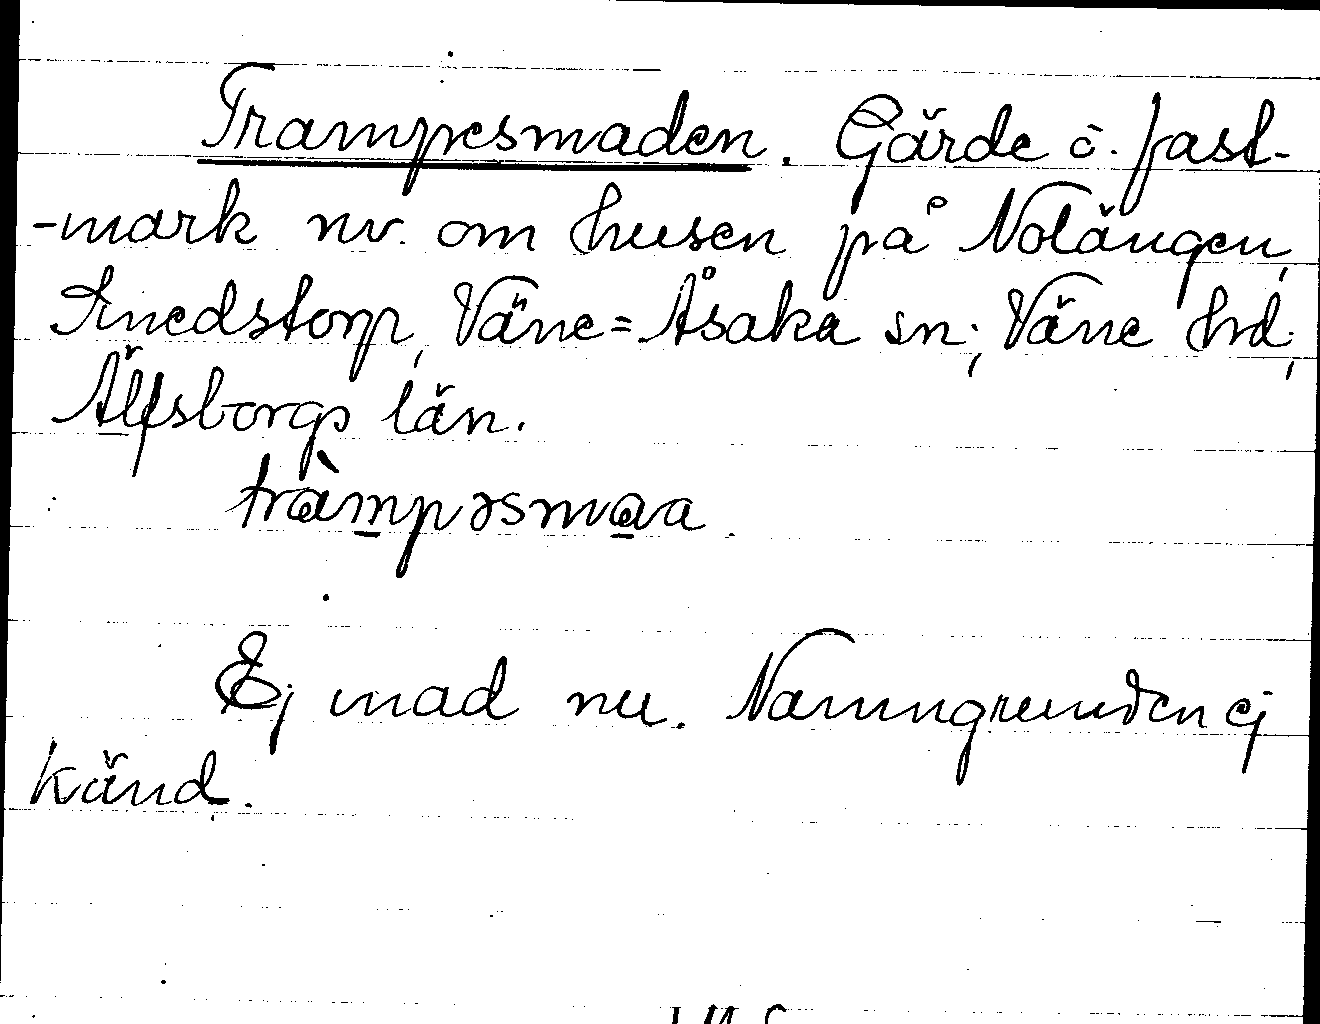 Trampesmaden. Gärde ö. fast-
-mark nv. om husen på Notängen,
Smedstorp, Väne=Åsaka sn; Väne hd;
Älfsborgs län.
tràmpəsmaa
Ej mad nu. Namngrunden ej
känd.